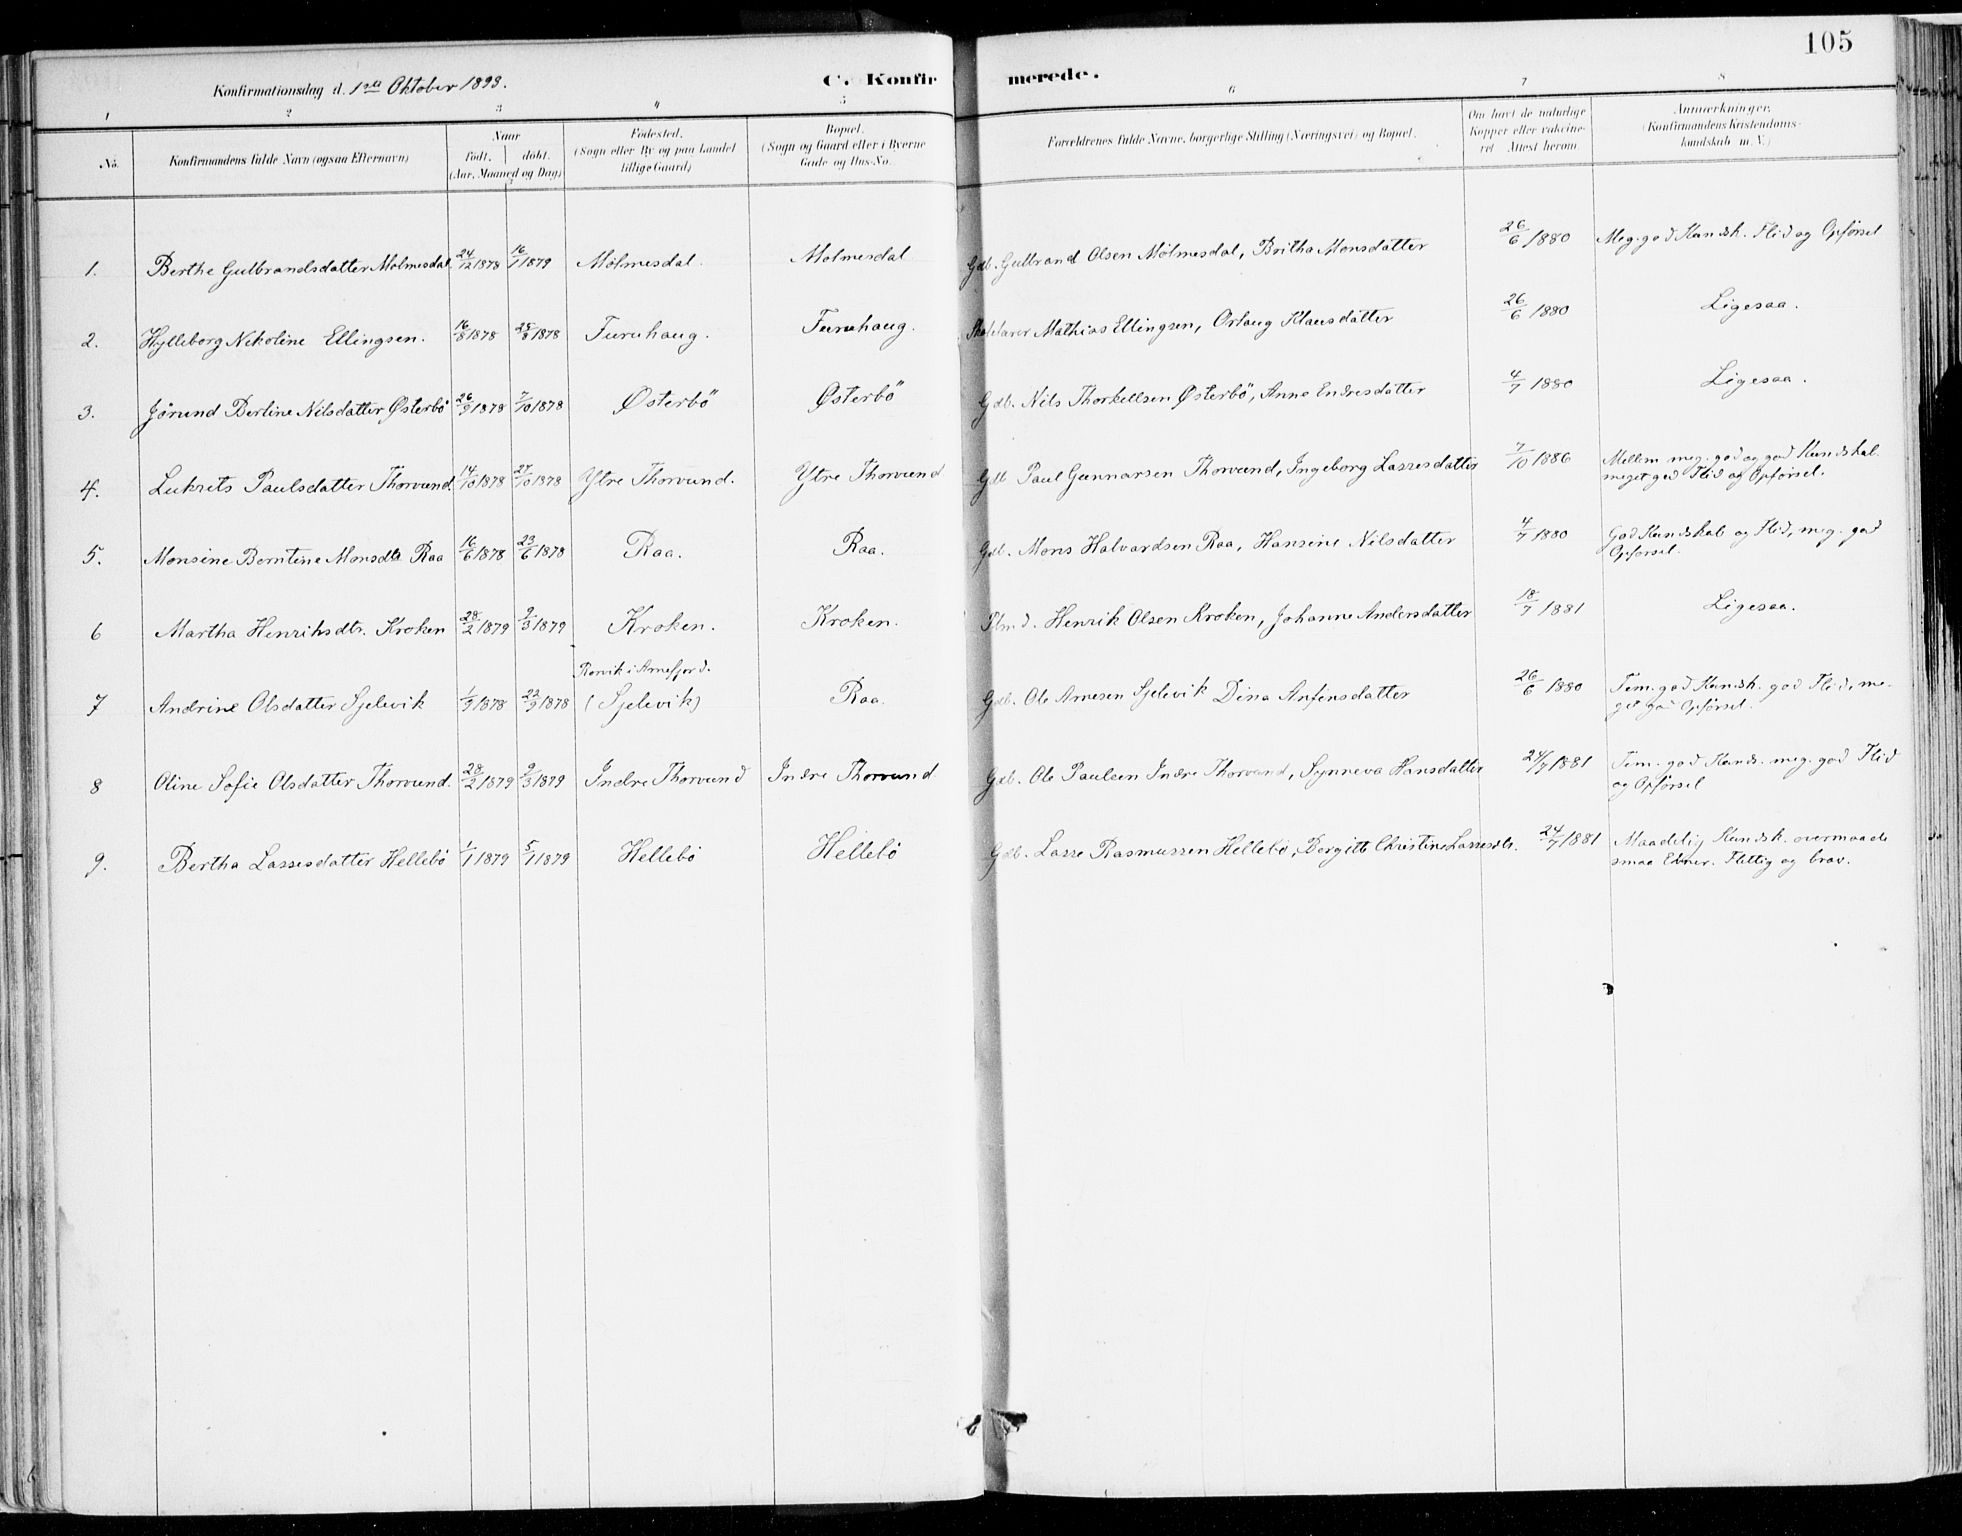 105
Konfirmationsdag d. 1ste Oktober 1893.
C. Konfirmerede.
1 2 3 4 5 6 7 8
No.
Konfirmandens fulde Navn (ogsaa Efternavn)
Naar
født. døbt.
(Aar, Maaned og Dag)
Fødested.
(Sogn eller By og paa Landet
tillige Gaard)
Bopæl.
(Sogn og Gaard eller i Byerne
Gade og Hus-No.
Forældrenes fulde Navne, borgerlige Stilling (Næringsvei) og Bopæl.
Om havt de naturlige
Kopper eller vakcine-
ret Attest herom.
Anmærkninger.
(Konfirmandens Kristendoms-
kundskab m. V.)
1. Berthe Gulbrandsdatter Mølmesdal 24/12 1878 16/1 1879 Mølmesdal. Mølmesdal Gdb. Gulbrand Olsen Mølmesdal, Britha Monsdatter 26/6 1880 Meg. god Kundsk. Flid og Opførsel
2. Hylleborg Nikoline Ellingsen. 16/8 1878 25/8 1878 Furuhaug. Furuhaug. Mathias Ellingsen, Orlaug Klausdatter 26/6 1880 Ligesaa.
3. Jörund Berline Nilsdatter Østerbö 26/9 1878 7/10 1878 Østerbö Østerbö Gdb. Nils Thorkellsen Østerbö, Anne Endresdatter 4/7 1880 Ligesaa.
4. Lukrits Paulsdatter Thorvund. 14/10 1878 27/10 1878 Ytre Thorvund. Ytre Thorvund Gdb. Paul Gunnarsen Thorvund, Ingeborg Lassesdatter 7/10 1886 Mellem meg. god og god Kundskab
meget god Flid og Opførsel.
5. Monsine Berntine Monsdtr Raa 16/6 1878 23/6 1878 Raa. Raa. Gdb. Mons Halvardsen Raa, Hansine Nilsdatter 4/7 1880 God Kundskab og Flid, meg. god
Opførsel.
6 Martha Henriksdtr. Kroken 28/2 1879 9/3 1879 Kroken. Kroken. Plmd. Henrik Olsen Kroken, Johanne Andersdatter 18/7 1881 Ligesaa.
Rørvik i Arnefjord.
7 Andrine Olsdatter Sjelevik 1/9 1878 22/9 1878 (Sjelevik) Raa. Gdb. Ole Arnesen Sjelevik Dina Anfinsdatter 26/6 1880 Tem. god Kundsk. god Flid, me-
get god Opførsel.
8 Oline Sofie Olsdatter Thorvund. 28/2 1879 9/3 1879 Indre Thorvund Indre Thorvund Gdb. Ole Paulsen Indre Thorvund, Synneva Hansdatter 24/7 1881 Tem. god Kunds. meg. god Flid
og Opførsel
9. Bertha Lassesdatter Hellebö 1/1 1879 5/1 1879 Hellebö Hellebö Gdb. Lasse Rasmussen Hellebö, Bergitte Christine Lassesdtr. 24/7 1881 Maadelig Kundsk. overmaade
smaa Evner. Flittig og brav.